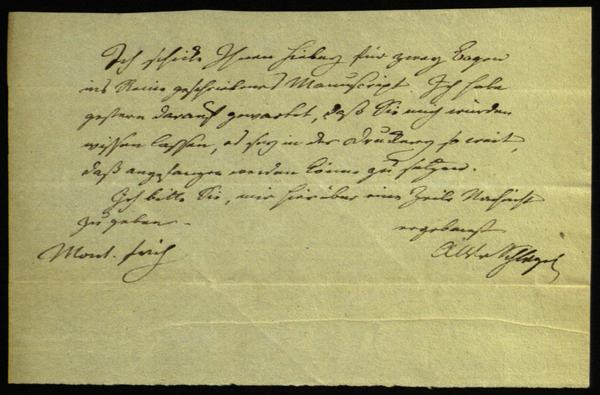 Ich schicke Ihnen hiebey für zwey Bogen
ins Reine geschriebenes Manuscript. Ich habe
gestern darauf gewartet, daß Sie mich würden
wissen lassen, es sey in der Druckerey so weit,
daß angefangen werden könne zu setzen.
Ich bitte Sie, mir hierüber eine Zeile Nachricht
zu geben.
ergebenst
Mont. früh
AWvSchlegel